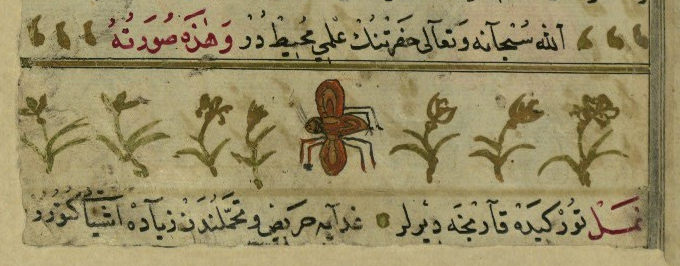 الله سُبْحَانَه وَتَعَالَى حَضْرَتْنُكْ عِلْمِي مُحِيطْ دُرْ وَهٰذَه صُورَتُهُ
نَمَلْ تُورْكِيدَه قَارِنْجَه دِيرْلَر غدايه حَرِيضْ و تَحَمُّلُنْدَنْ زِيَادَه اَشْيَا كُتُورُرْ